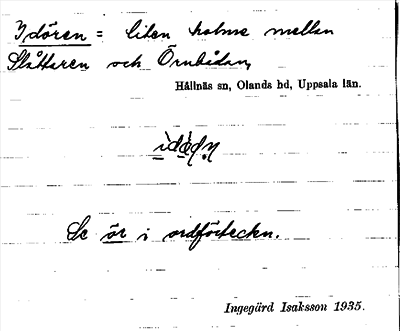 Idören = liten holme mellan
Slåttaren och Örnbådan,
Hållnäs sn, Olands hd, Uppsala län.
Se ör i ordförteckn.
Ingegärd Isaksson 1935.